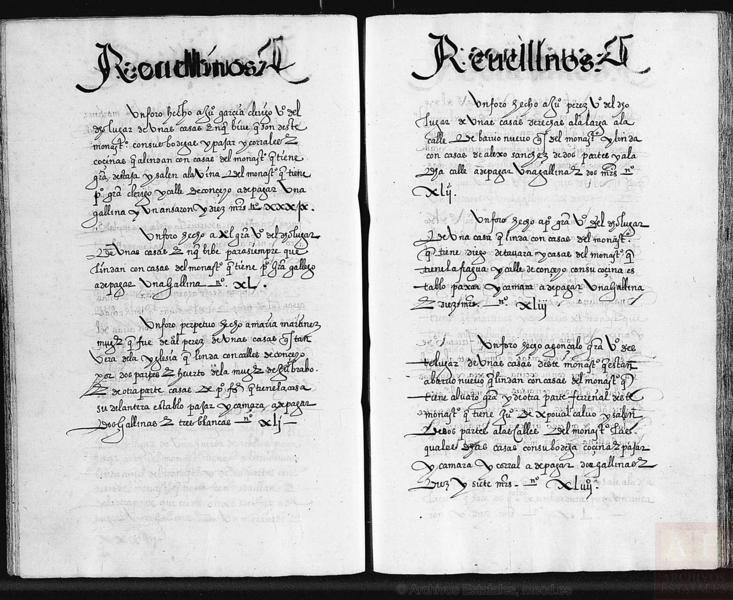 Recuillinos
Un foro hecho a Juº garcia clerigo vº del
dho lugar de unas casas en q bive que son deste
monastº con sus bodegas y pajar y corrales E
cocinas q alindan con casas del monastº q tiene
y salen a la vina del monastº q tiene
pº grª clerigo y calle de conçejo a de pagar Una
gallina y Un ansaron y diez mrs nº XXXIX.
Un foro hecho a grª vº del dho lugar
De Unas casas En q bibe para siempre que
lindan con casas del monastº q tiene pº grª gallego
a de pagar Una Gallina nº XL.
Un foro perpetuo hecho a maria martinez
muger que fue de al perez de unas casas que estan
Vera de la yglesia que linda con calles de conçejo
por dos partes E huerto de la muger de
E de otra parte casas de pº q tiene la casa
su delantera establo pajar y camara a de pagar
Dos Gallinas E tres blancas nº xlj
Recuillinos
Un foro hecho a Juº perez vº del dho
lugar de unas casas a la larga a la
calle De barrio nuevo q es del monastº y linda
con casas de alexo sanchez de dos partes y a la
dha calle a de pagar Una gallina E dos mrs nº
XLij.
Un foro hecho a pº grª vº del dho lugar
De Una casa q linda con casas del monastº
q tiene diego de tavara y casas del monastº q
tiene la fragua y calle de conçejo con su cocina es
tablo paxar y camara a de pagar Una Gallina
E diez mrs. nº xliij
Un foro hecho a gonçalo grª vº des
te lugar de Unas casas deste monastº q estan
al bario nuevo q lindan con casas del monastº q
tiene alvaro grª y de otra parte ferrenal deste
monastº q tiene Juº de calvo y salen
De dos partes a las calles Del monastº las
quales dhas casas con su bodega cocina E pajar
y camara y corral a de pagar dos gallinas E
Diez y siete mrs. nº xliiij.
© Archivos Estatales, mecd.es